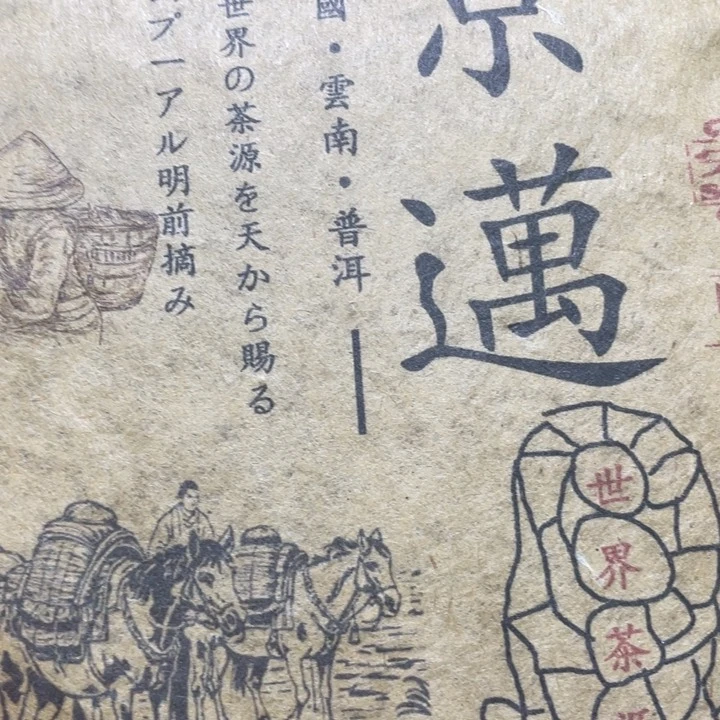 景邁
國・雲南・普洱
世界の茶源を天から賜る
プーアル明前摘み
世界茶源